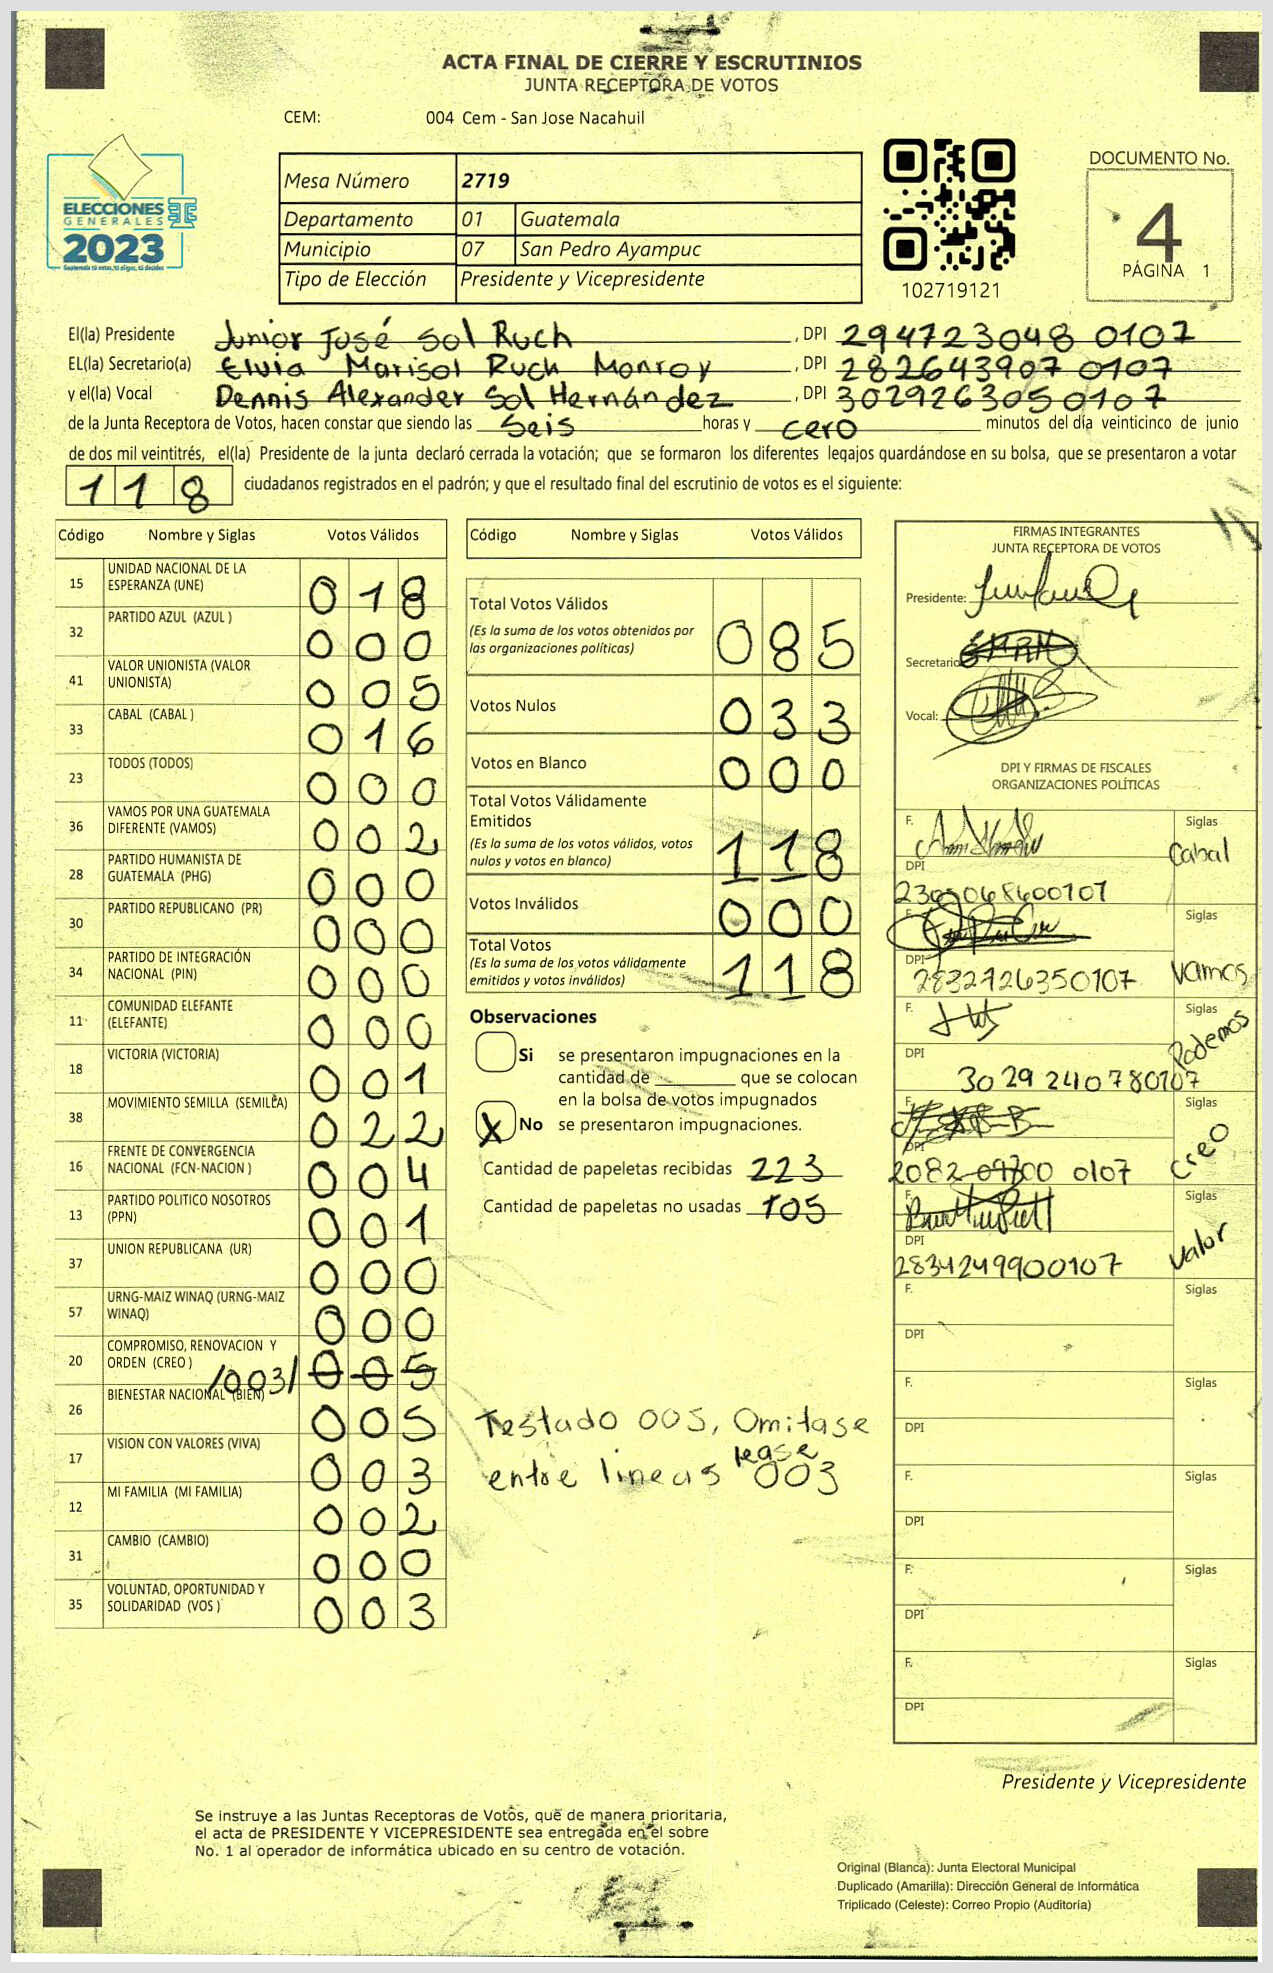 ACTA FINAL DE CIERRE Y ESCRUTINIOS
JUNTA RECEPTORA DE VOTOS
CEM: 004 Cem - San Jose Nacahuil
ELECCIONES
GENERALES
2023
Guatemala tú votas, tú eliges, tú decides
Mesa Número 2719
Departamento 01 Guatemala
Municipio 07 San Pedro Ayampuc
Tipo de Elección Presidente y Vicepresidente
102719121
DOCUMENTO No.
4
PÁGINA 1
El(la) Presidente Junior José Sol Ruch, DPI 294723048 0107
EL(la) Secretario(a) Elvia Marisol Ruch Monroy, DPI 282643907 0107
y el(la) Vocal Dennis Alexander Sol Hernández, DPI 3029263050107
de la Junta Receptora de Votos, hacen constar que siendo las Seis horas y cero minutos del día veinticinco de junio
de dos mil veintitrés, el(la) Presidente de la junta declaró cerrada la votación; que se formaron los diferentes legajos guardándose en su bolsa, que se presentaron a votar
118 ciudadanos registrados en el padrón; y que el resultado final del escrutinio de votos es el siguiente:
Código Nombre y Siglas Votos Válidos
15 UNIDAD NACIONAL DE LA
ESPERANZA (UNE) 018
32 PARTIDO AZUL (AZUL ) 000
41 VALOR UNIONISTA (VALOR
UNIONISTA) 005
33 CABAL (CABAL ) 016
23 TODOS (TODOS) 000
36 VAMOS POR UNA GUATEMALA
DIFERENTE (VAMOS) 002
28 PARTIDO HUMANISTA DE
GUATEMALA (PHG) 000
30 PARTIDO REPUBLICANO (PR) 000
34 PARTIDO DE INTEGRACIÓN
NACIONAL (PIN) 000
11 COMUNIDAD ELEFANTE
(ELEFANTE) 000
18 VICTORIA (VICTORIA) 001
38 MOVIMIENTO SEMILLA (SEMILLA) 022
16 FRENTE DE CONVERGENCIA
NACIONAL (FCN-NACION ) 004
13 PARTIDO POLITICO NOSOTROS
(PPN) 001
37 UNION REPUBLICANA (UR) 000
57 URNG-MAIZ WINAQ (URNG-MAIZ
WINAQ) 000
20 COMPROMISO, RENOVACION Y
ORDEN (CREO ) /003/ 005
26 BIENESTAR NACIONAL (BIEN) 005
17 VISION CON VALORES (VIVA) 003
12 MI FAMILIA (MI FAMILIA) 002
31 CAMBIO (CAMBIO) 000
35 VOLUNTAD, OPORTUNIDAD Y
SOLIDARIDAD (VOS ) 003
Código Nombre y Siglas Votos Válidos
Total Votos Válidos
(Es la suma de los votos obtenidos por
las organizaciones políticas) 085
Votos Nulos 033
Votos en Blanco 000
Total Votos Válidamente
Emitidos
(Es la suma de los votos válidos, votos
nulos y votos en blanco) 118
Votos Inválidos 000
Total Votos
(Es la suma de los votos válidamente
emitidos y votos inválidos) 118
Observaciones
Si se presentaron impugnaciones en la
cantidad de ________ que se colocan
en la bolsa de votos impugnados
X No se presentaron impugnaciones.
Cantidad de papeletas recibidas 223
Cantidad de papeletas no usadas 105
Testado 005, Omitase
entre lineas lease 003
FIRMAS INTEGRANTES
JUNTA RECEPTORA DE VOTOS
Presidente:
Secretario
Vocal:
DPI Y FIRMAS DE FISCALES
ORGANIZACIONES POLÍTICAS
F. Siglas
Cabal
DPI
F. Siglas
DPI
2832726350107 Vamos
F. Siglas
Podemos
DPI
3029 240780107
F. Siglas
DPI
Creo
F. Siglas
DPI
2834249900107 Valor
F. Siglas
DPI
F. Siglas
DPI
F. Siglas
DPI
F. Siglas
DPI
F. Siglas
DPI
Presidente y Vicepresidente
Se instruye a las Juntas Receptoras de Votos, que de manera prioritaria,
el acta de PRESIDENTE Y VICEPRESIDENTE sea entregada en el sobre
No. 1 al operador de informática ubicado en su centro de votación.
Original (Blanca): Junta Electoral Municipal
Duplicado (Amarilla): Dirección General de Informática
Triplicado (Celeste): Correo Propio (Auditoría)